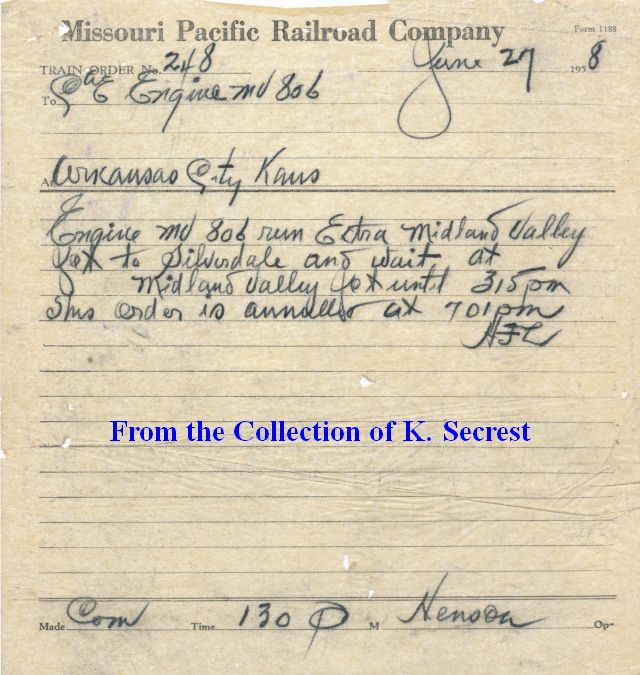 Missouri Pacific Railroad Company
Form 1188
TRAIN ORDER No. 248 June 27 1958
To C&E Engine MV 806
At Arkansas City Kans
Engine MV 806 run Extra Midland Valley
Jct to Silverdale and wait at
Midland Valley Jct until 315pm
This order is annulled at 701pm
AFL
From the Collection of K. Secrest
Made Com Time 130 P M Henson Opr